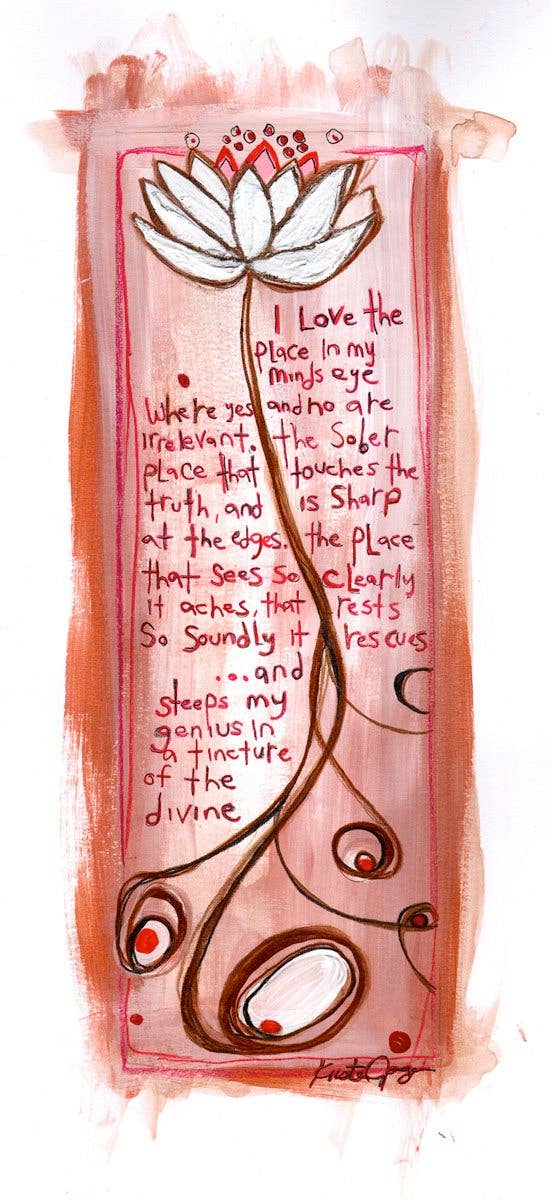 I Love the
place In my
minds eye
Where yes and no are
irrelevant. the Sober
place that touches the
truth, and is Sharp
at the edges. the place
that sees so clearly
it aches, that rests
So Soundly it rescues
...and
steeps my
genius In
a tincture
of the
divine